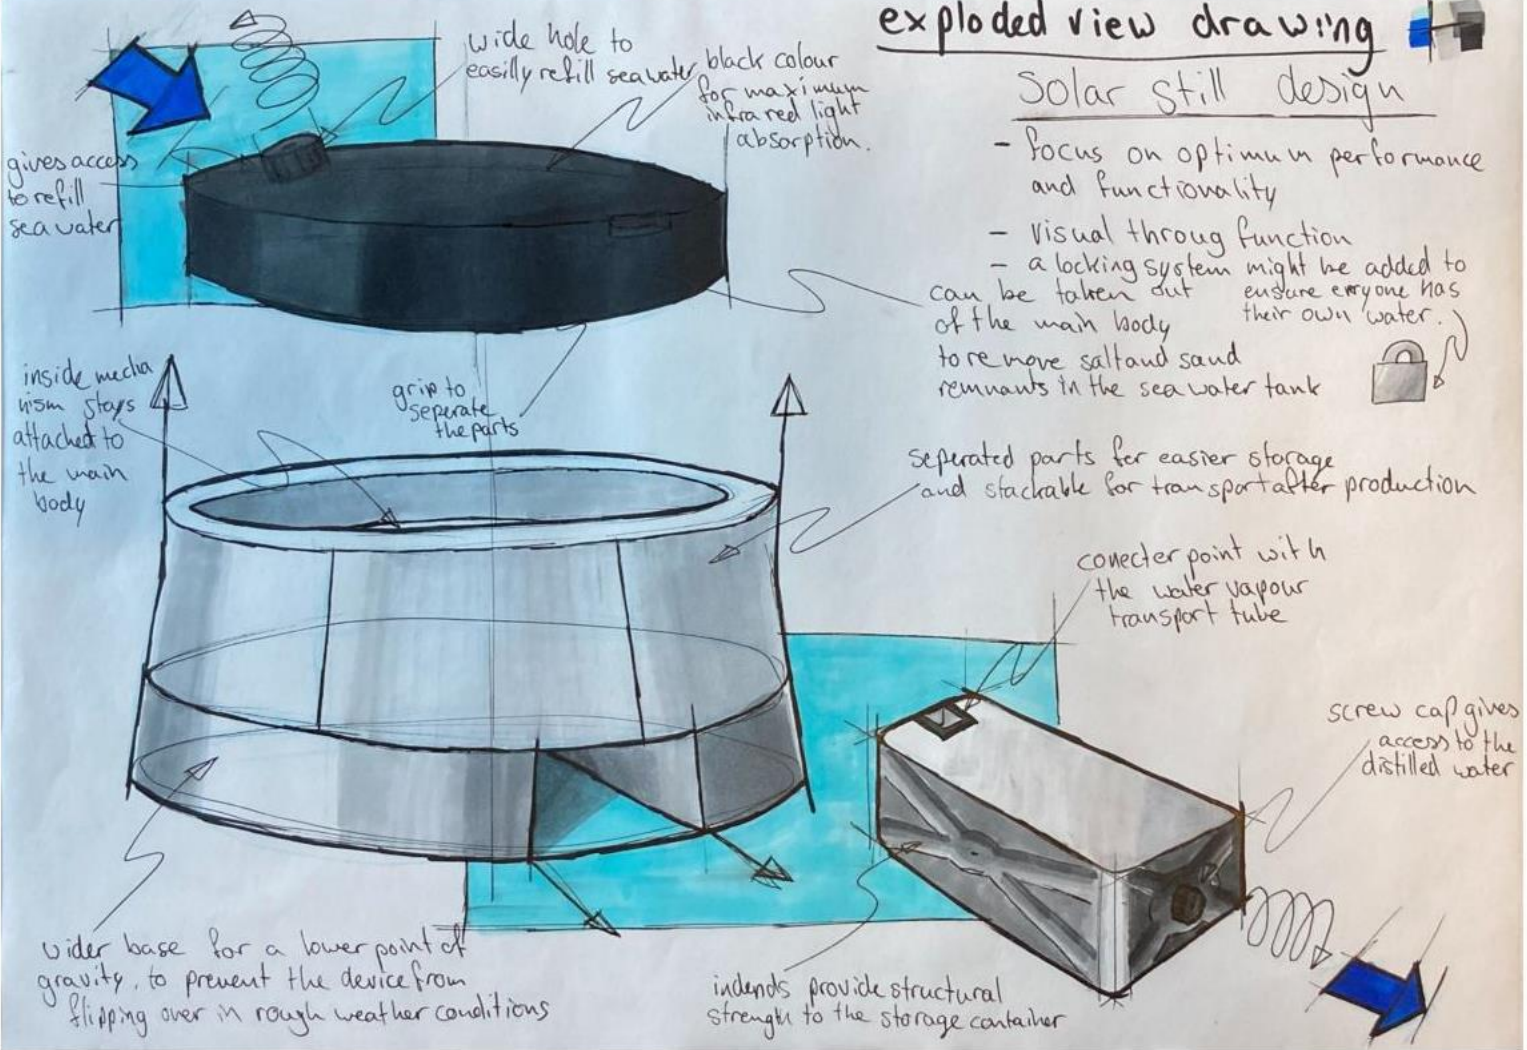 exploded view drawing
Solar still design
- focus on optimum performance
and functionality
- visual throug function
- a locking system might be added to
ensure eryone has
their own water.
wide hole to
easilly refill seawater
black colour
for maximum
infrared light
absorption.
gives access
to refill
sea water
can be taken out
of the main body
to remove salt and sand
remnants in the sea water tank
inside mecha
nism stays
attached to
the main
body
grip to
seperate
the parts
seperated parts for easier storage
and stackable for transport after production
conecter point with
the water vapour
transport tube
screw cap gives
access to the
distilled water
wider base for a lower point of
gravity, to prevent the device from
flipping over in rough weather conditions
indends provide structural
strength to the storage container